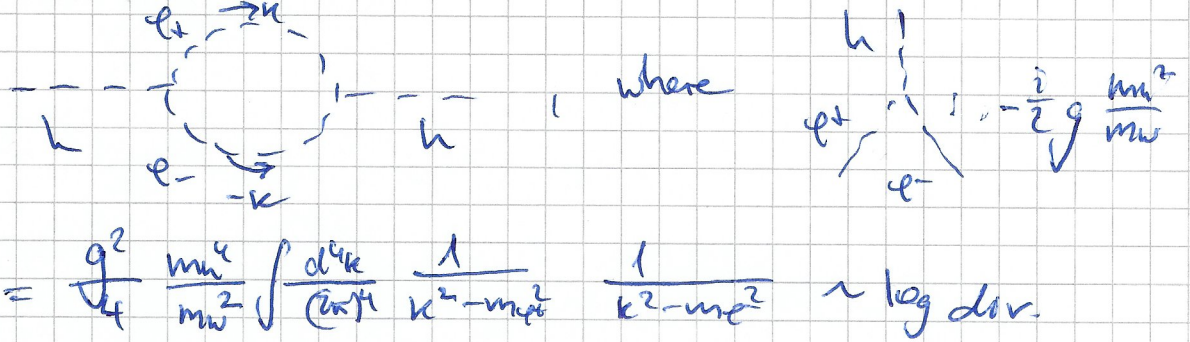 φ+ → k
h h , where h φ+ φ- : - i/2 g mh²/mw
φ- → -k
= g²/4 mh⁴/mw² ∫ d⁴k/(2π)⁴ 1/(k²-mφ²) 1/(k²-mφ²) ~ log div.